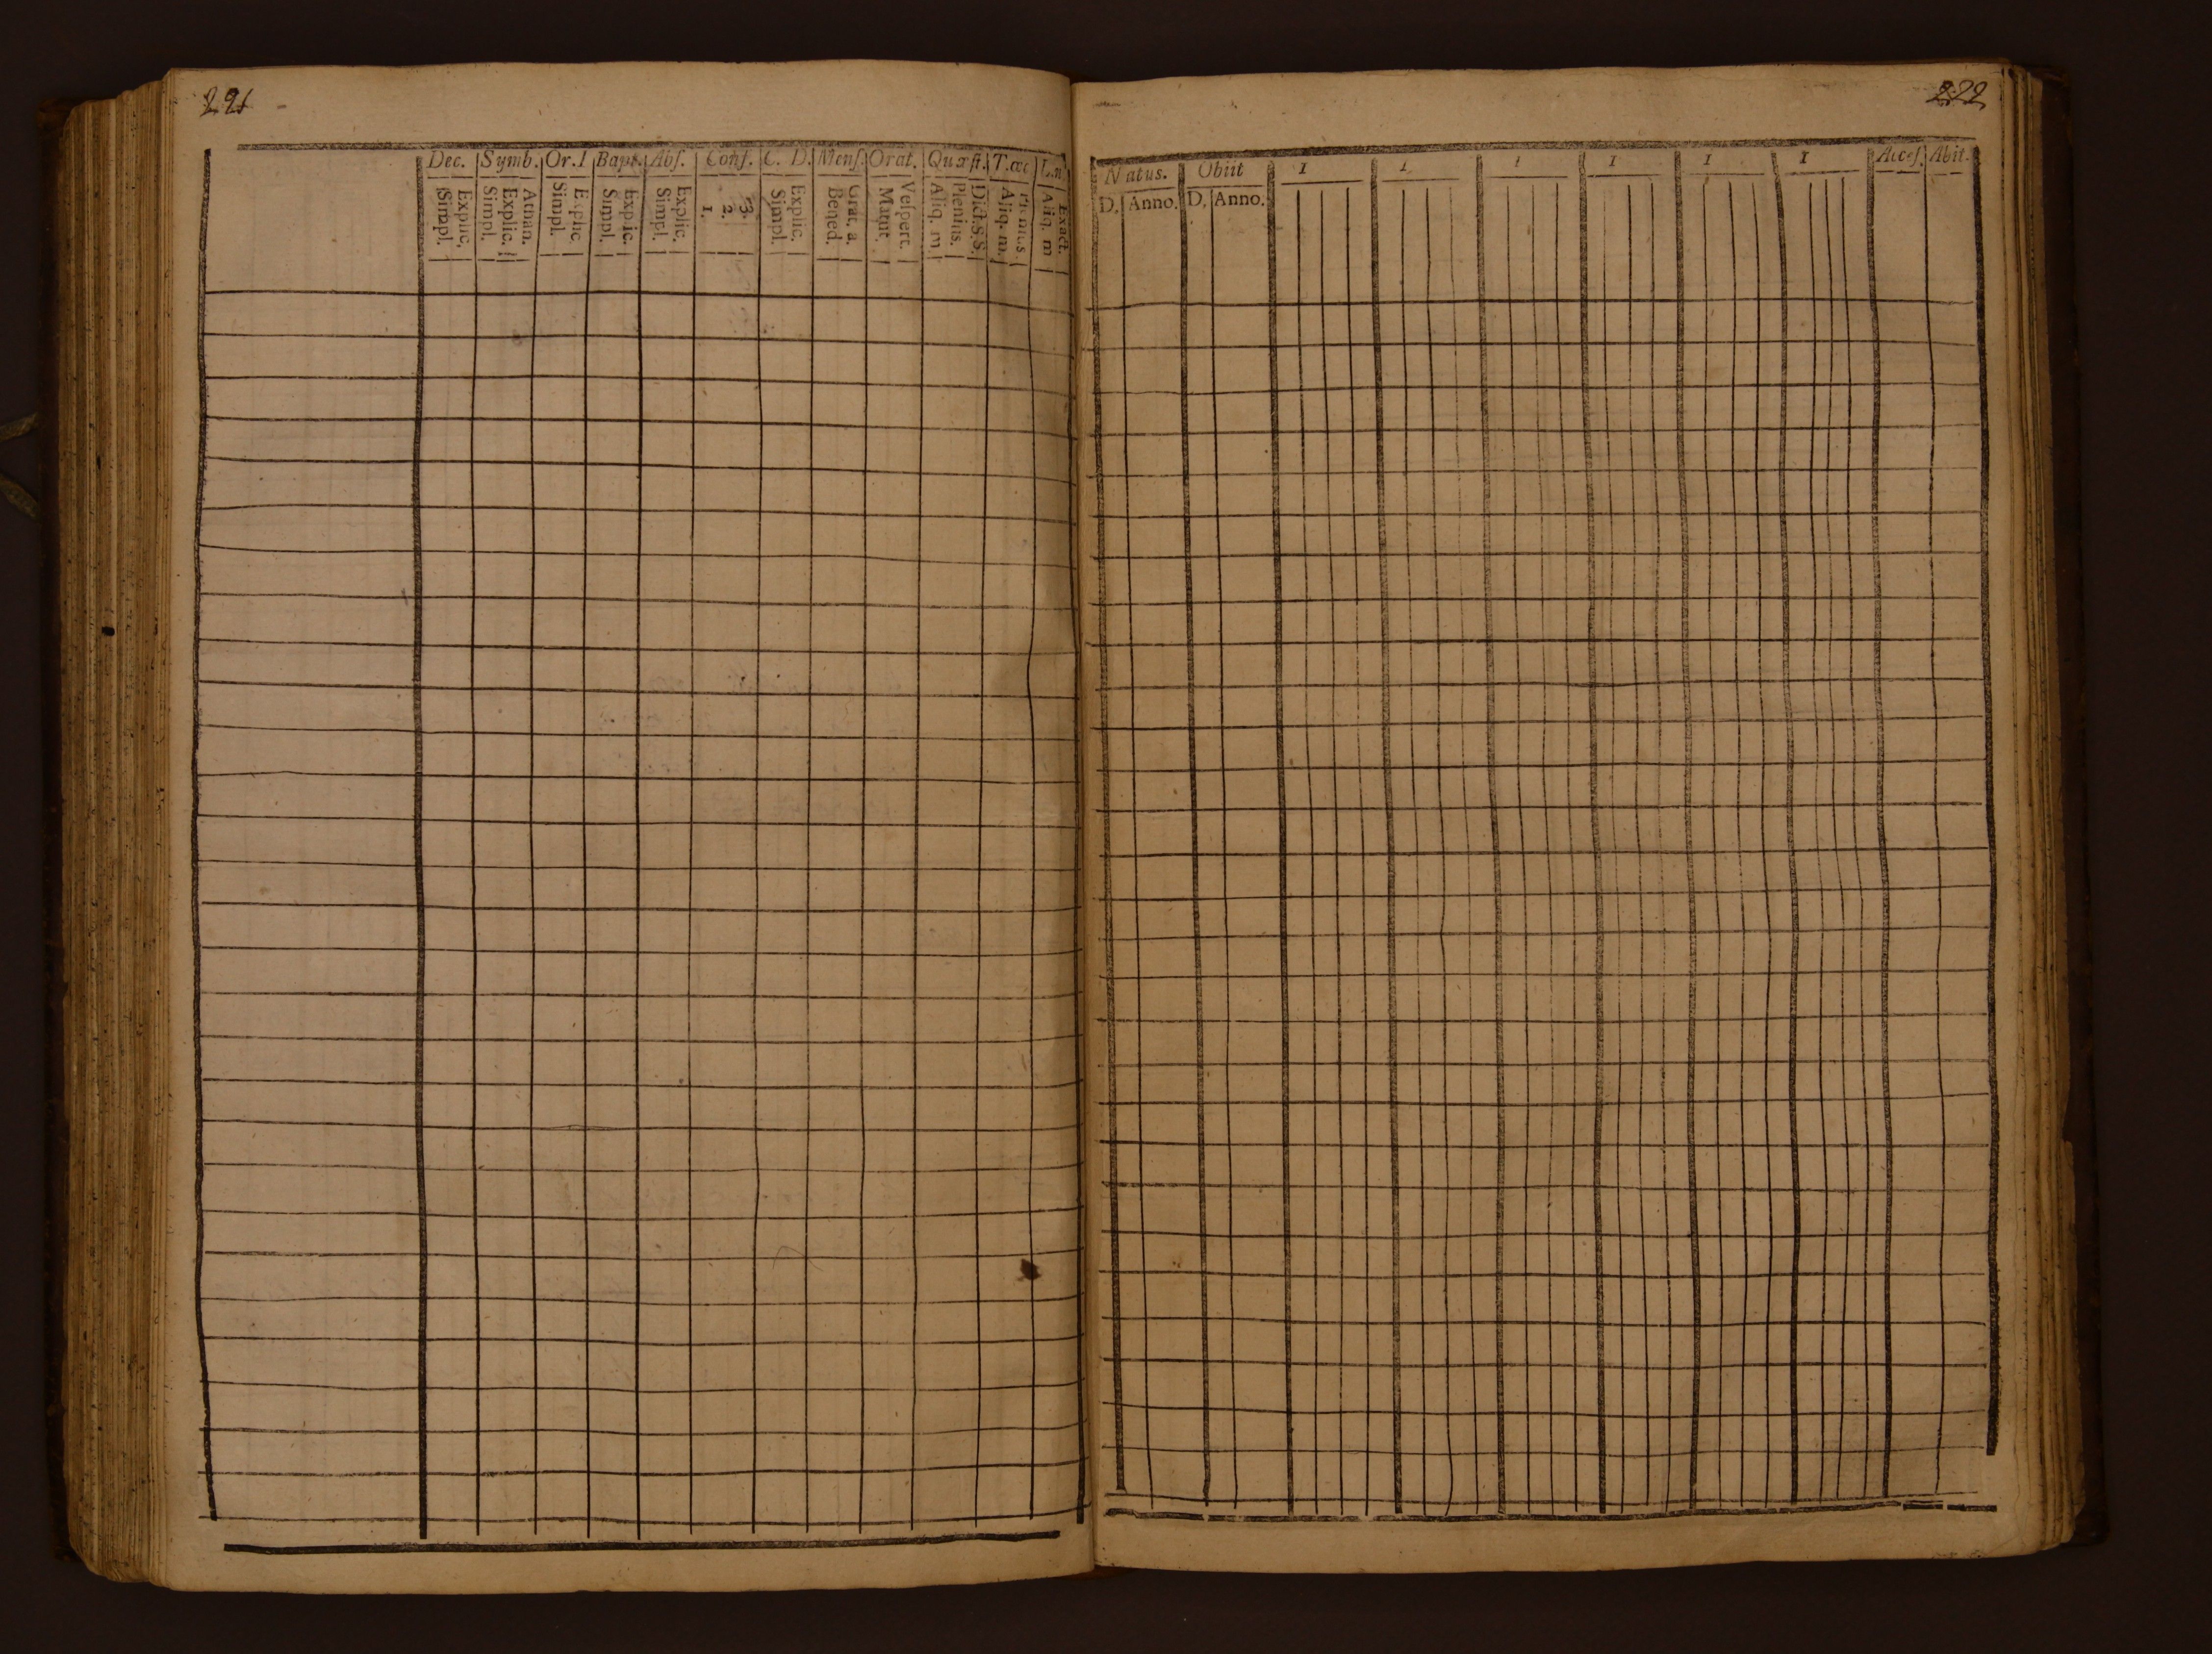 221
Dec. Symb. Or. I Bapt. Abſ. Conf. C. D. Menſ. Orat. Quæſt. T. œc L. n
Explic. Simpl.
Athan. Explic. Simpl.
Explic. Simpl.
Explic. Simpl.
Explic. Simpl.
3. 2. 1.
Explic. Simpl.
Grat. a. Bened.
Veſpert. Matut.
Dict. S. S. Plenius. Aliq. m
Plenius. Aliq. m.
Exact. Aliq. m
222
Natus. Obiit I I I I I I Acceſ. Abit.
D. Anno. D. Anno.